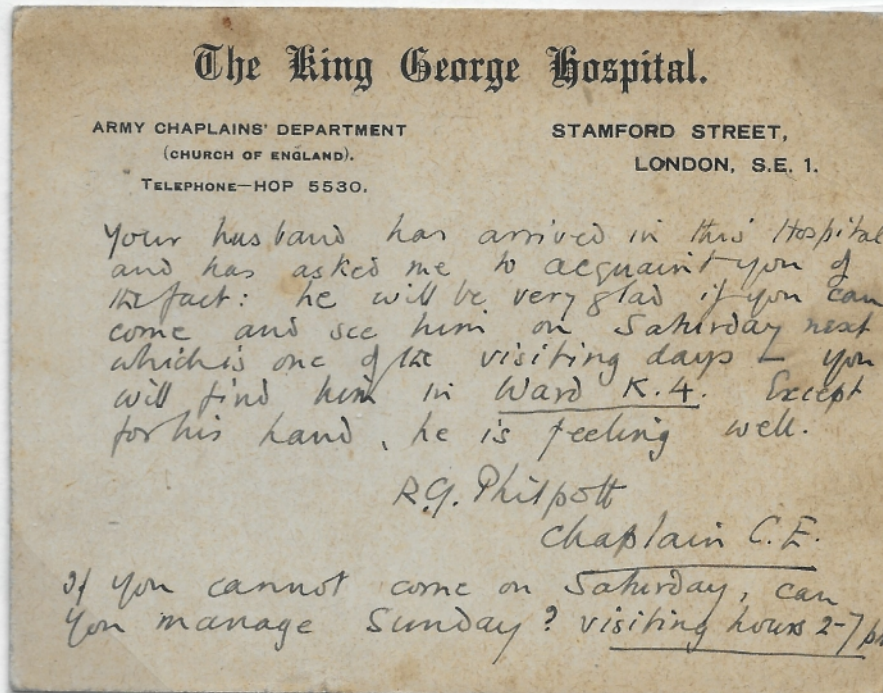 The King George Hospital.
ARMY CHAPLAINS' DEPARTMENT
(CHURCH OF ENGLAND).
TELEPHONE—HOP 5530.
STAMFORD STREET,
LONDON, S.E. 1.
Your husband has arrived in this Hospital
and has asked me to acquaint you of
the fact: he will be very glad if you can
come and see him on Saturday next
which is one of the visiting days – you
will find him in Ward K.4. Except
for his hand, he is feeling well.
R.G. Philpott
Chaplain C.E.
If you cannot come on Saturday, can
you manage Sunday? visiting hours 2-7 pm